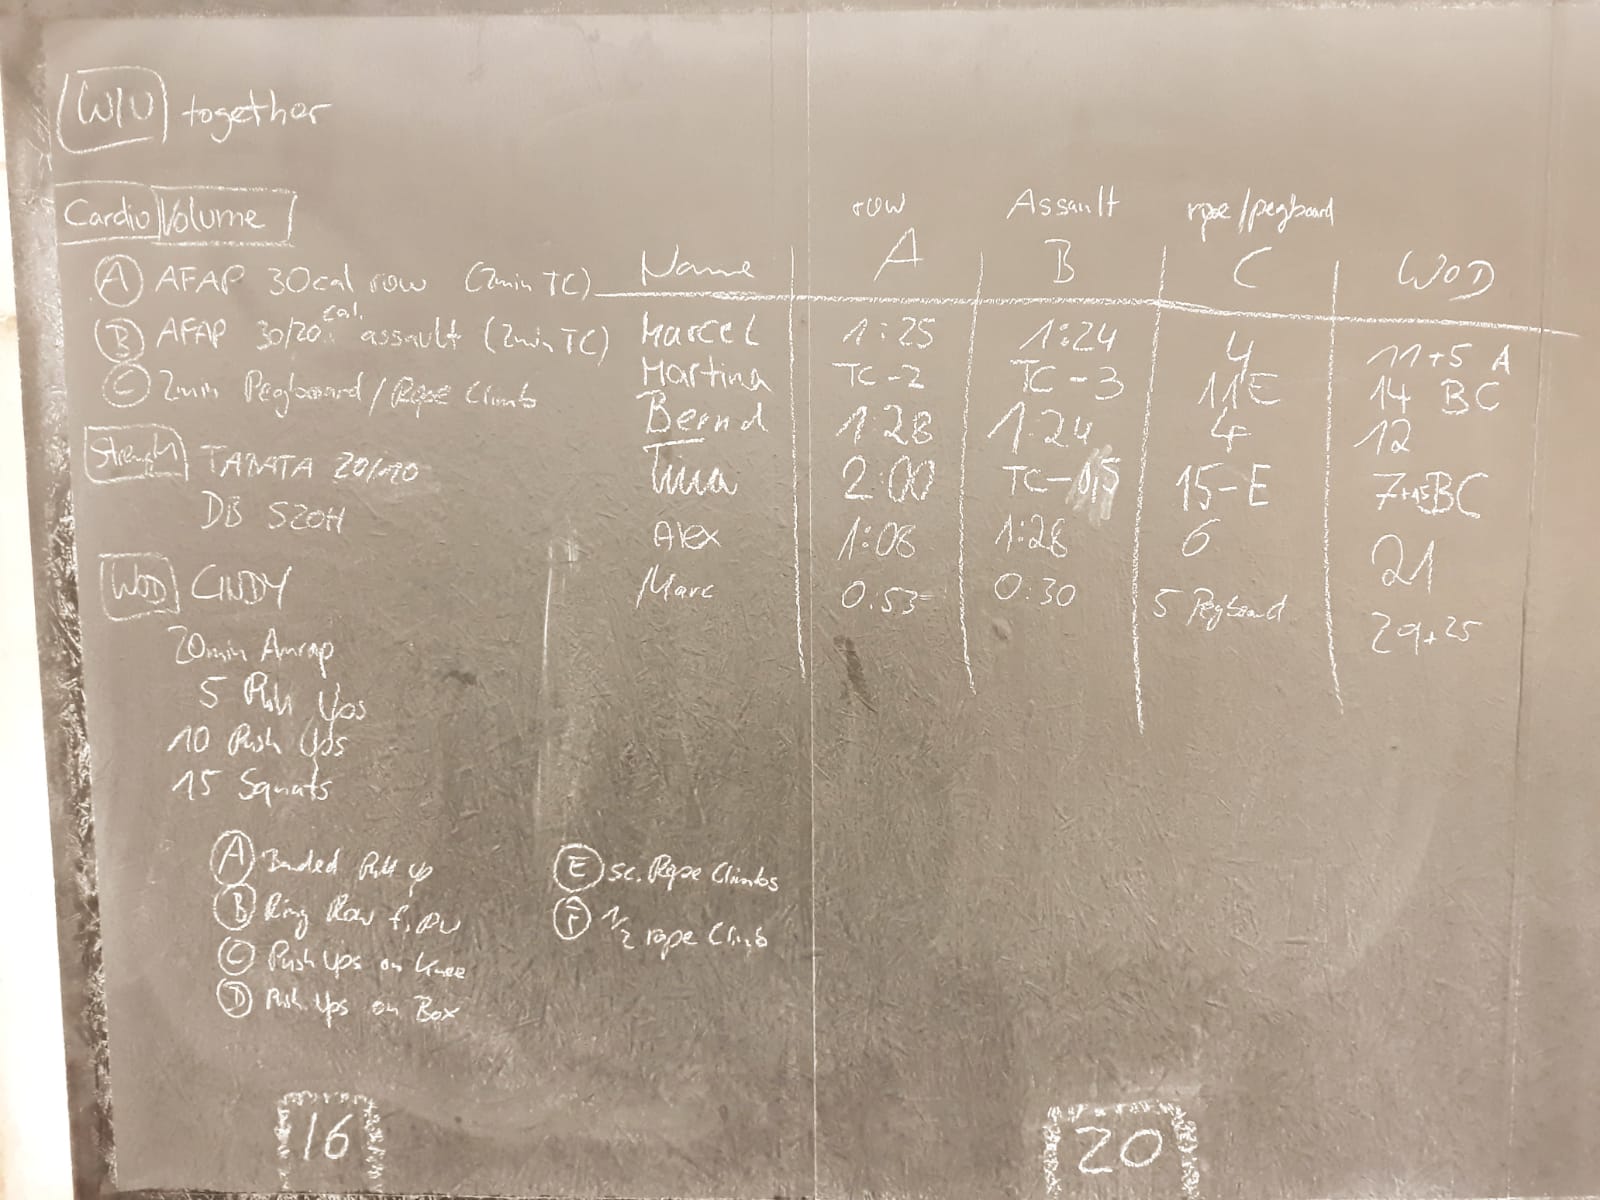 W/U together
Cardio Volume
A AFAP 30cal row (2min TC)
B AFAP 30/20 cal. assault (2min TC)
C 2min Pegboard/Rope Climb
Strength TABATA 20/10
DB S2OH
WOD CINDY
20min Amrap
5 Pull Ups
10 Push Ups
15 Squats
A Banded Pull up
B Ring Row
C Push Ups on Knee
D Push Ups on Box
E sc. Rope Climbs
F 1/2 rope Climb
row Assault rope/pegboard
Name A B C WOD
Marcel 1:25 1:24 4 11+5 A
Martina TC-2 TC-3 11E 14 BC
Bernd 1:28 1:24 4 12
Tina 2:00 TC- 15-E 7+15BC
Alex 1:08 1:28 6 21
Marc 0:53 0:30 5 Pegboard 29+25
16
20